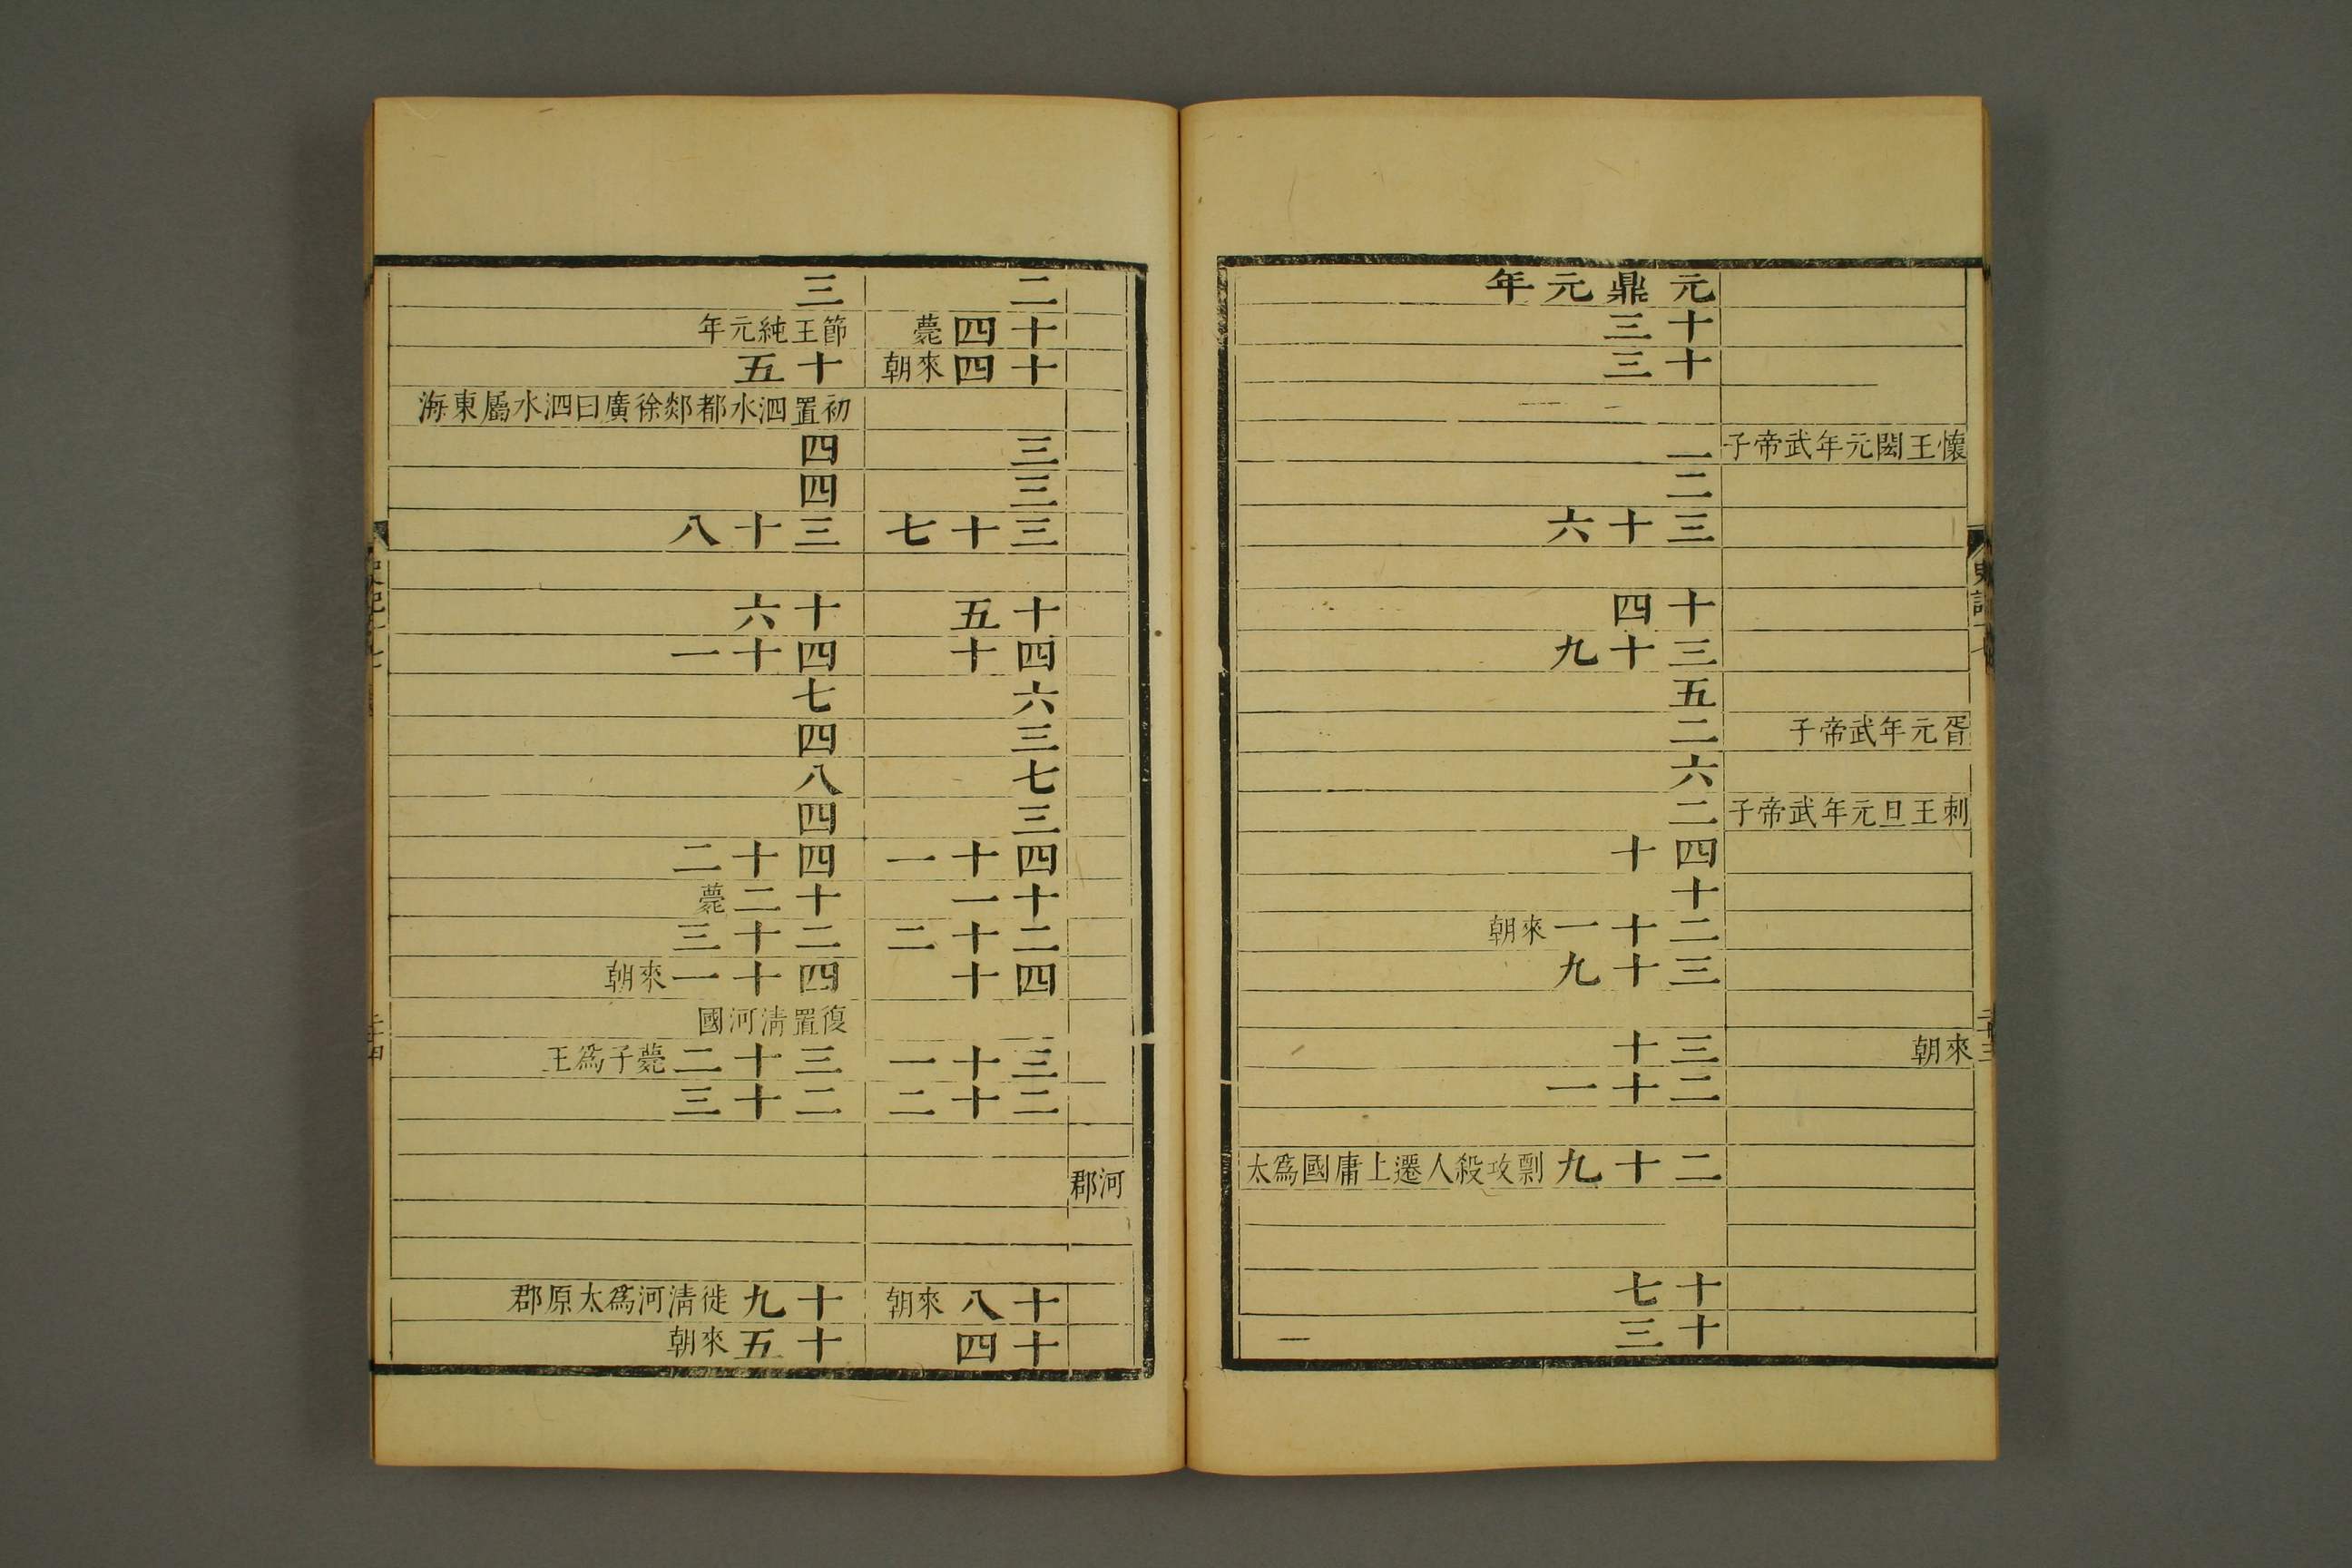 懷王閎元年武帝子
胥元年武帝子
刺王旦元年武帝子
來朝
元鼎元年
十三
十三
二
二
三十六
十四
三十九
五
二
六
二
四十
十
二十一來朝
三十九
三十
二十一
二十九剽攻殺人遷上庸國爲太
十七
十三
河郡
二
十四薨
十四來朝
三
三
三十七
十五
四十
六
三
七
三
四十一
十一
二十二
四十
三十一
二十二
十八來朝
十四
三
節王純元年
十五
初置泗水都郯徐廣曰泗水屬東海
四
四
三十八
十六
四十一
七
四
八
四
四十二
十二薨
二十三
四十一來朝
復置清河國
三十二薨子爲王
二十三
十九徙清河爲太原郡
十五來朝